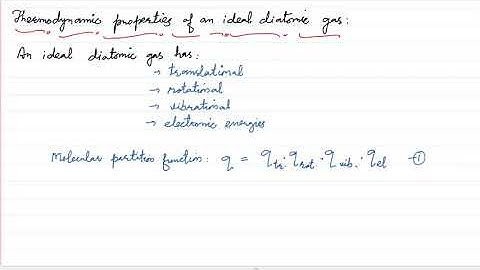 Thermodynamic properties of an ideal diatomic gas:
An ideal diatomic gas has:
→ translational
→ rotational
→ vibrational
→ electronic energies
Molecular partition function: q = q_tr. q_rot . q_vib. q_el —①